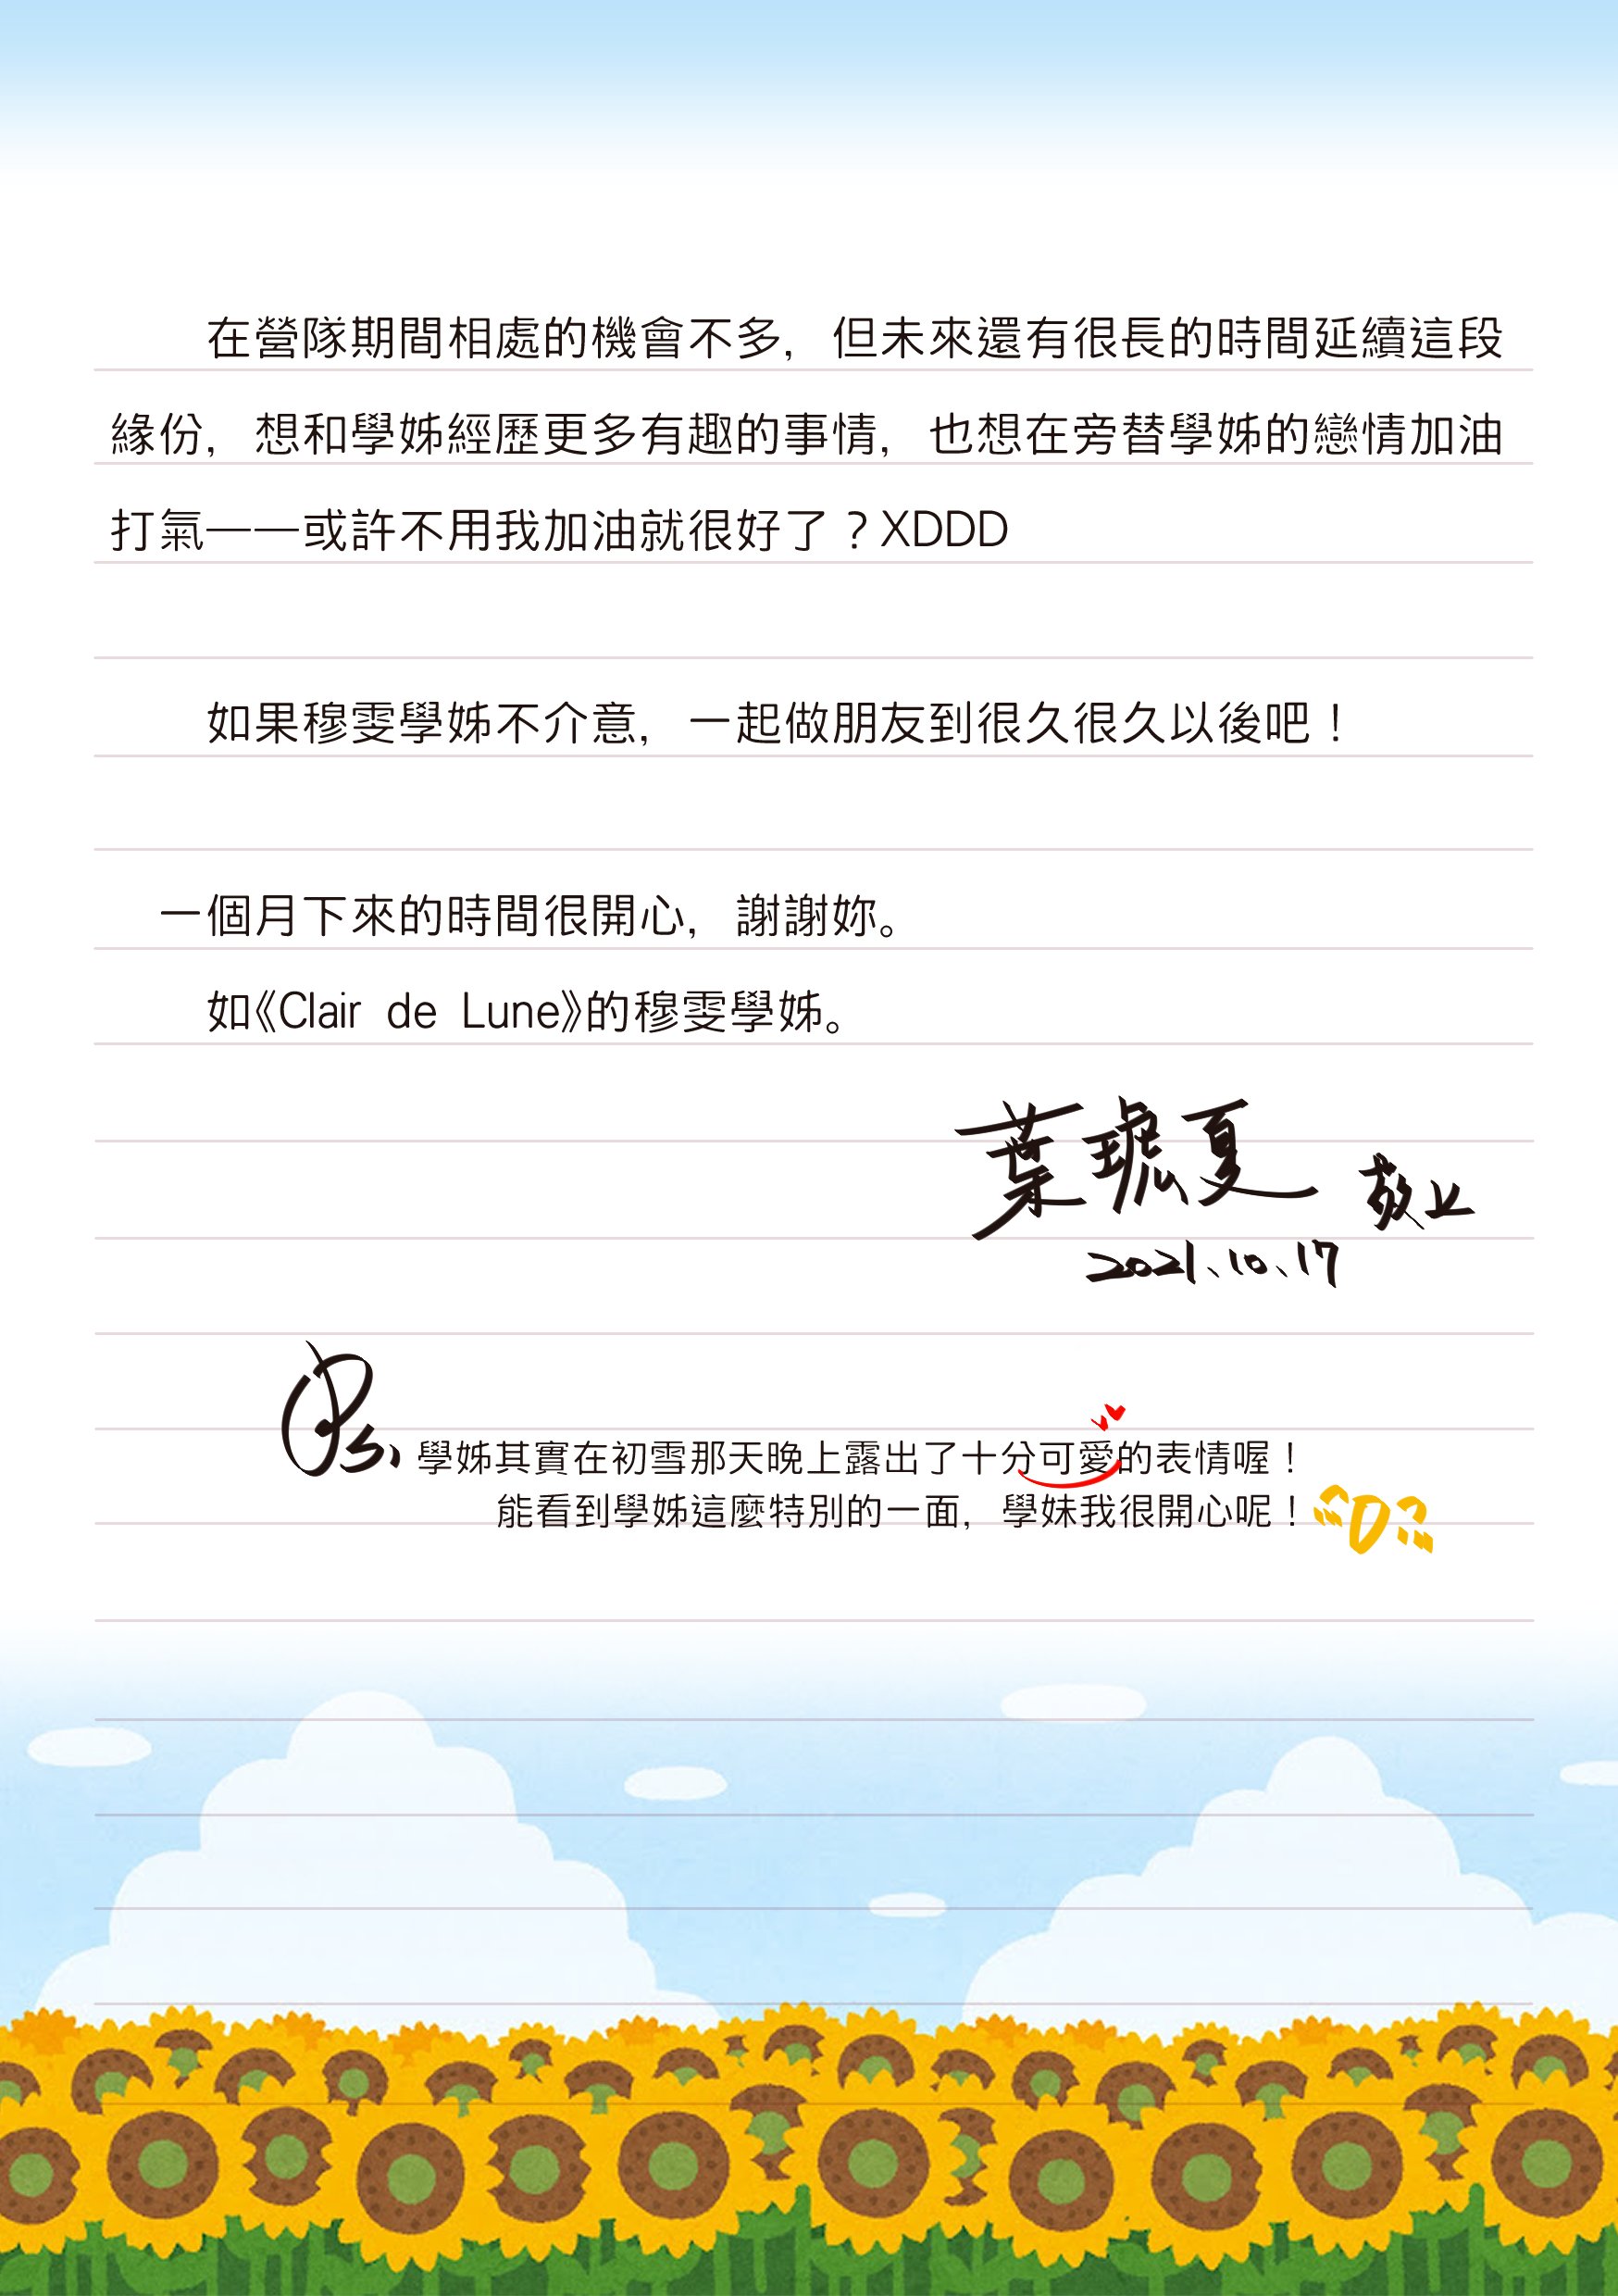 在營隊期間相處的機會不多，但未來還有很長的時間延續這段
緣份，想和學姊經歷更多有趣的事情，也想在旁替學姊的戀情加油
打氣——或許不用我加油就很好了？XDDD
如果穆雯學姊不介意，一起做朋友到很久很久以後吧！
一個月下來的時間很開心，謝謝妳。
如《Clair de Lune》的穆雯學姊。
葉琥夏 敬上
2021、10、17
Ps、學姊其實在初雪那天晚上露出了十分可愛的表情喔！
能看到學姊這麼特別的一面，學妹我很開心呢！